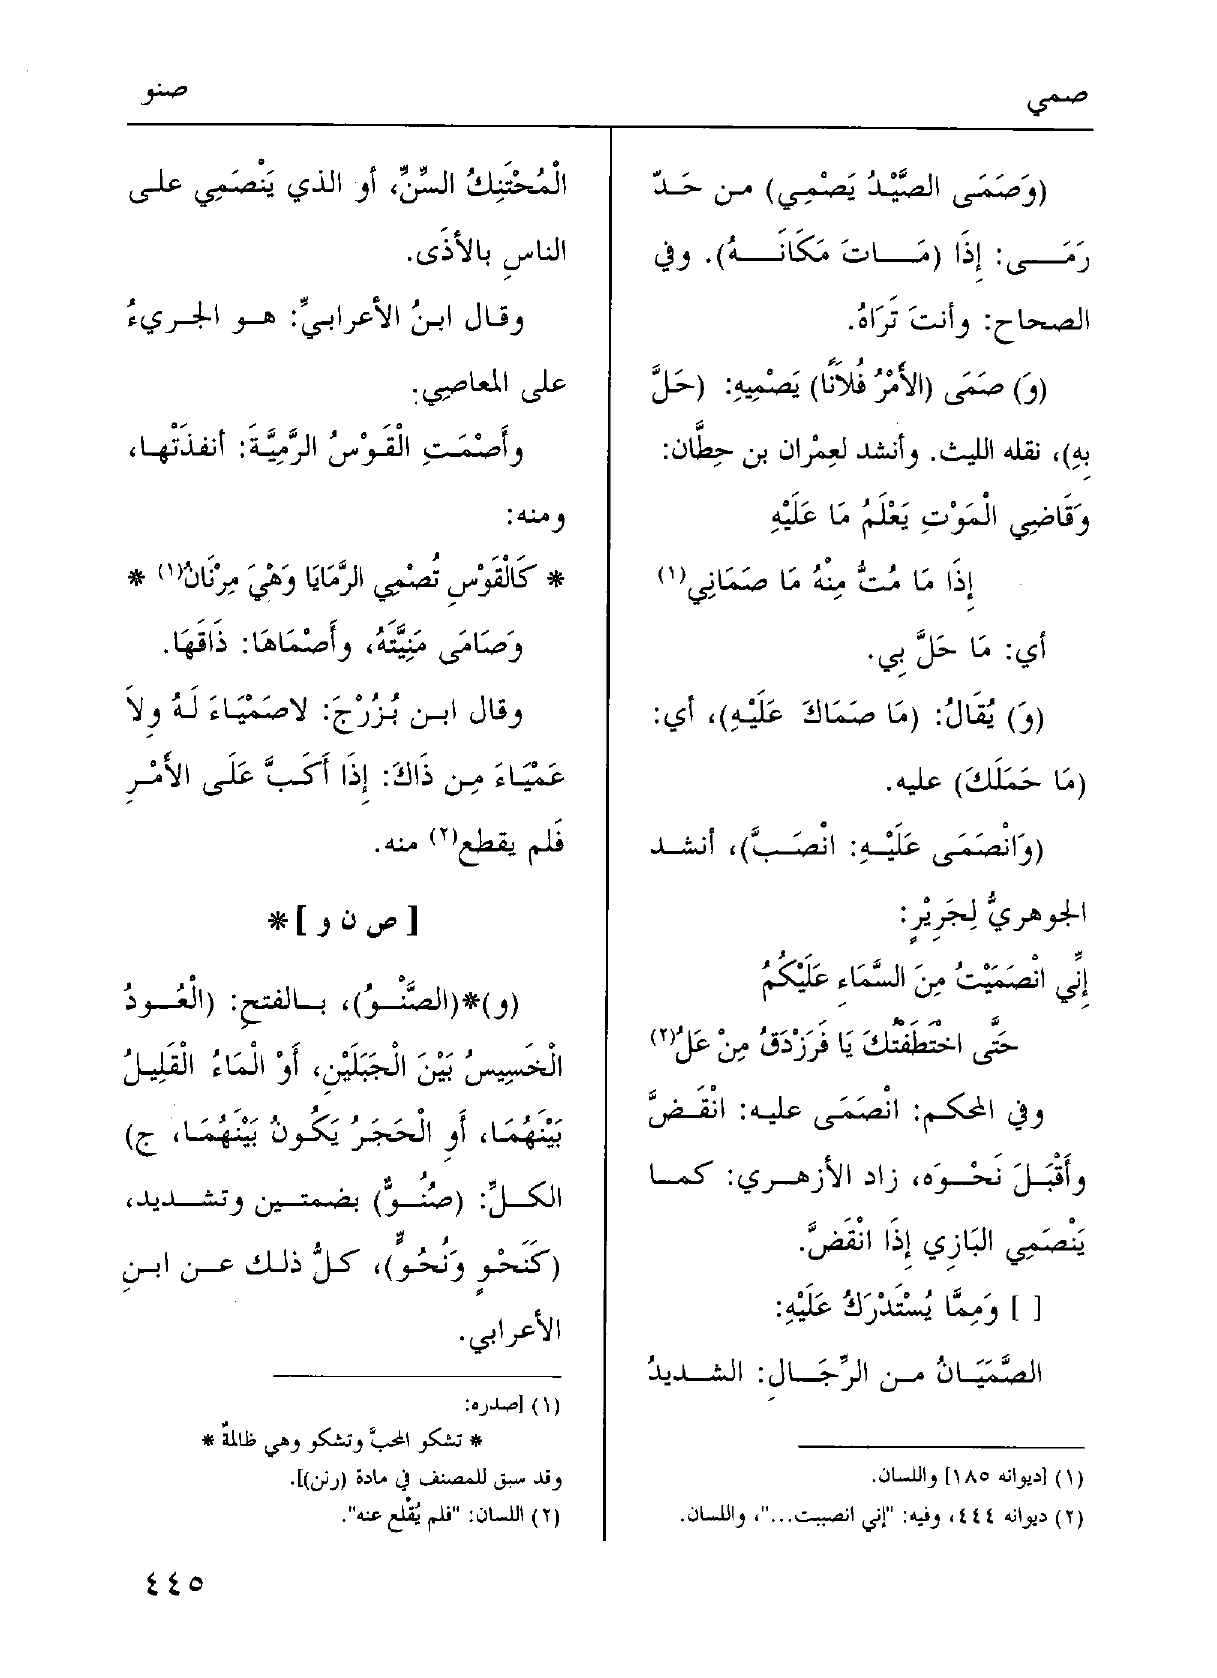 صمي
صنو
(وَصَمَى الصَّيْدُ يَصْمِي) من حَدِّ
رَمَى: إِذَا (مَاتَ مَكَانَهُ). وفي
الصحاح: وأنتَ تَرَاهُ.
(وَ) صَمَى (الأَمْرُ فُلَانًا) يَصْمِيهِ: (حَلَّ
بِهِ)، نقله الليث. وأنشد لعِمْران بن حِطَّان:
وَقَاضِي الْمَوْتِ يَعْلَمُ مَا عَلَيْهِ
إِذَا مَا مُتُّ مِنْهُ مَا صَمَانِي(١)
أي: مَا حَلَّ بِي.
(وَ) يُقَالُ: (مَا صَمَاكَ عَلَيْهِ)، أي:
(مَا حَمَلَكَ) عليه.
(وَانْصَمَى عَلَيْهِ: انْصَبَّ)، أنشد
الجوهريُّ لِجَرِيْرٍ:
إِنِّي انْصَمَيْتُ مِنَ السَّمَاءِ عَلَيْكُمُ
حَتَّى اخْتَطَفْتُكَ يَا فَرَزْدَقُ مِنْ عَلُ(٢)
وفي المحكم: انْصَمَى عليه: انْقَضَّ
وأَقْبَلَ نَحْوَه، زاد الأزهري: كما
يَنْصَمِي البَازِي إِذَا انْقَضَّ.
[ ] وَمِمَّا يُسْتَدْرَكُ عَلَيْهِ:
الصَّمَيَانُ من الرِّجَالِ: الشديدُ
(١) [ديوانه ١٨٥] واللسان.
(٢) ديوانه ٤٤٤، وفيه: "إني انصببت..."، واللسان.
الْمُحْتَنِكُ السِّنِّ، أو الذي يَنْصَمِي على
الناسِ بالأَذَى.
وقال ابنُ الأعرابيِّ: هو الجريءُ
على المعاصِي.
وأَصْمَتِ الْقَوْسُ الرَّمِيَّةَ: أنفذَتْها،
ومنه:
* كَالْقَوْسِ تُصْمِي الرَّمَايَا وَهْيَ مِرْنَانُ(١) *
وَصَامَى مَنِيَّتَهُ، وأَصْمَاهَا: ذَاقَهَا.
وقال ابن بُزُرْجَ: لاصَمْيَاءَ لَهُ ولاَ
عَمْيَاءَ مِن ذَاكَ: إِذَا أَكَبَّ عَلَى الأَمْرِ
فَلم يقطع(٢) منه.
[ ص ن و ] *
(و)*(الصَّنْوُ)، بالفتح: (الْعُودُ
الْخَسِيسُ بَيْنَ الْجَبَلَيْنِ، أَوْ الْمَاءُ الْقَلِيلُ
بَيْنَهُمَا، أَوِ الْحَجَرُ يَكُونُ بَيْنَهُمَا، ج)
الكلِّ: (صُنُوٌّ) بضمتين وتشديد،
(كَنَحْوٍ وَنُحُوٍّ)، كلُّ ذلك عن ابنِ
الأعرابي.
(١) [صدره:
* تشكو المحبَّ وتشكو وهي ظالمةٌ *
وقد سبق للمصنف في مادة (رنن)].
(٢) اللسان: "فلم يُقْلِع عنه".
٤٤٥